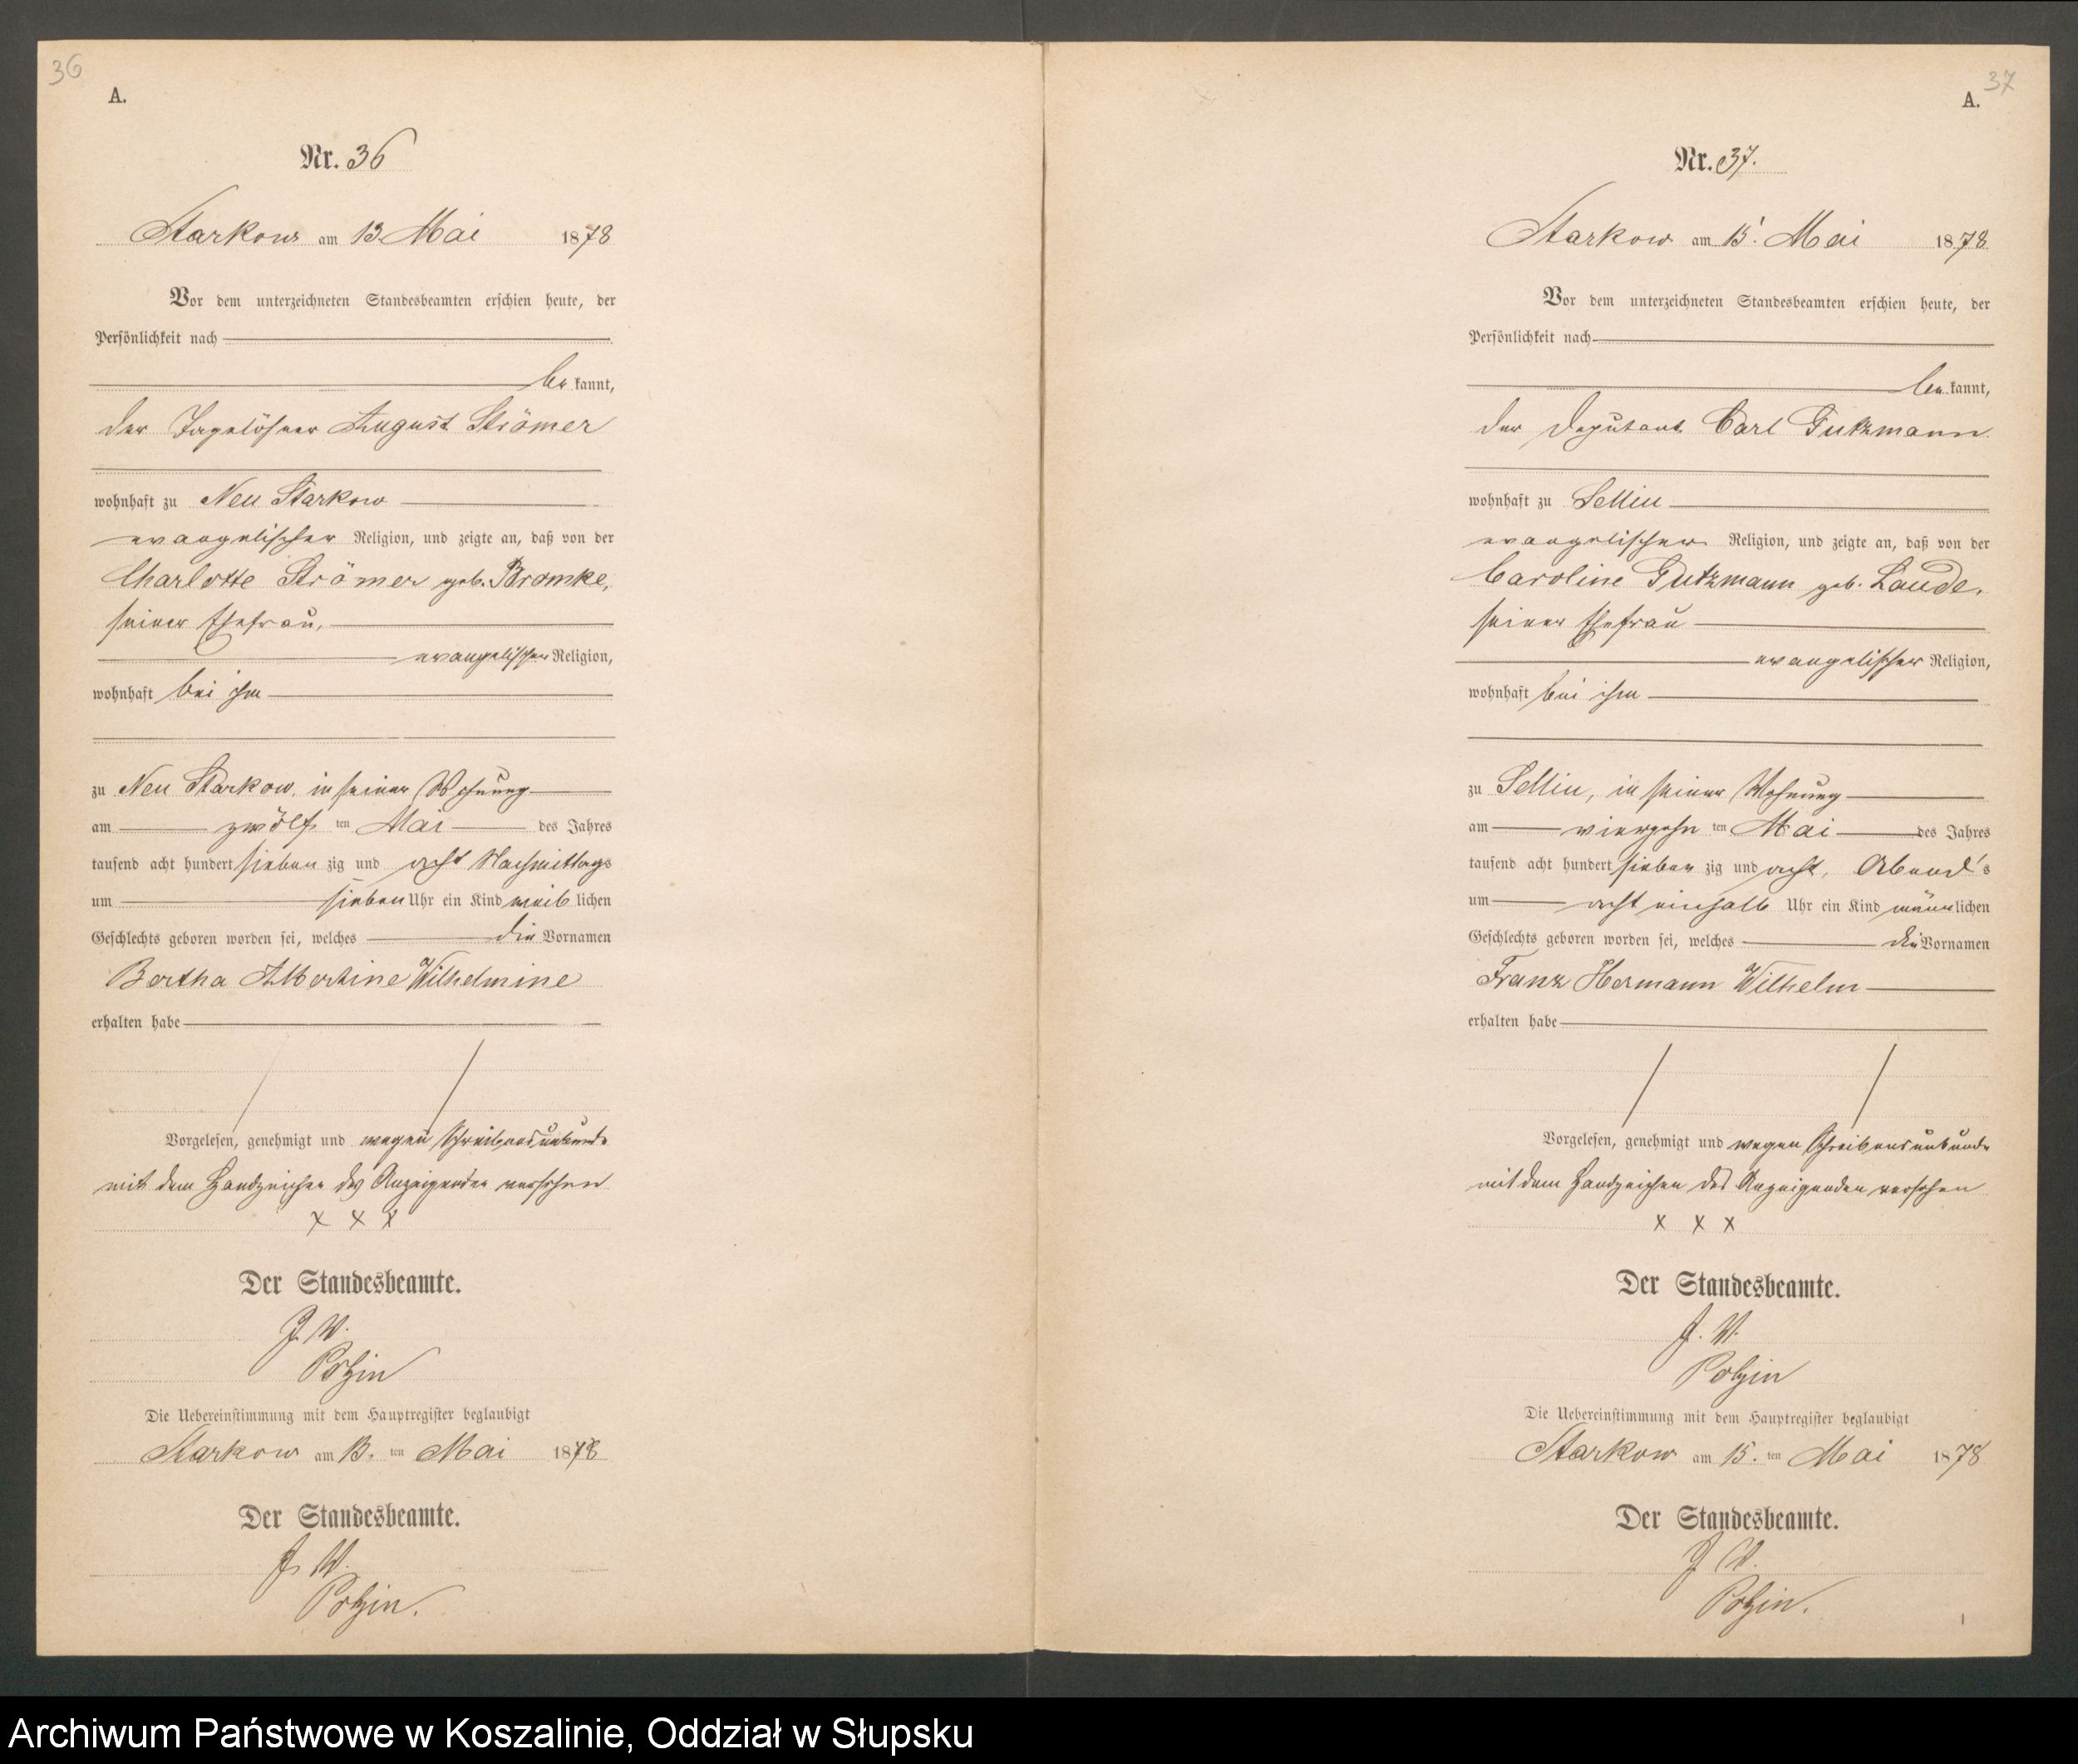 36
A.
Nr. 36
Starkow am 13. Mai 1878
Vor dem unterzeichneten Standesbeamten erschien heute, der
Persönlichkeit nach
be kannt,
der Tagelöhner August Strömer
wohnhaft zu Neu Starkow
evangelischer Religion, und zeigte an, daß von der
Charlotte Strömer geb. Bromke,
seiner Ehefrau,
evangelischer Religion,
wohnhaft bei ihm
zu Neu Starkow, in seiner Wohnung
am zwölf ten Mai des Jahres
tausend acht hundert sieben zig und acht Nachmittags
um sieben Uhr ein Kind weib lichen
Geschlechts geboren worden sei, welches die Vornamen
Bertha Albertine Wilhelmine
erhalten habe
Vorgelesen, genehmigt und wegen Schreibensunkunde
mit dem Handzeichen des Anzeigenden versehen
x x x
Der Standesbeamte.
J. V.
Polzin
Die Uebereinstimmung mit dem Hauptregister beglaubigt
Starkow am 13. ten Mai 1878
Der Standesbeamte.
J. V.
Polzin.
37
A.
Nr. 37.
Starkow am 15. Mai 1878
Vor dem unterzeichneten Standesbeamten erschien heute, der
Persönlichkeit nach
be kannt,
der Deputant Carl Gutzmann
wohnhaft zu Sellin
evangelischer Religion, und zeigte an, daß von der
Caroline Gutzmann geb. Laude,
seiner Ehefrau
evangelischer Religion,
wohnhaft bei ihm
zu Sellin, in seiner Wohnung
am vierzehn ten Mai des Jahres
tausend acht hundert sieben zig und acht, Abend's
um acht einhalb Uhr ein Kind männ lichen
Geschlechts geboren worden sei, welches die Vornamen
Franz Hermann Wilhelm
erhalten habe
Vorgelesen, genehmigt und wegen Schreibensunkunde
mit dem Handzeichen des Anzeigenden versehen
x x x
Der Standesbeamte.
J. V.
Polzin
Die Uebereinstimmung mit dem Hauptregister beglaubigt
Starkow am 15. ten Mai 1878
Der Standesbeamte.
J. V.
Polzin.
Archiwum Państwowe w Koszalinie, Oddział w Słupsku